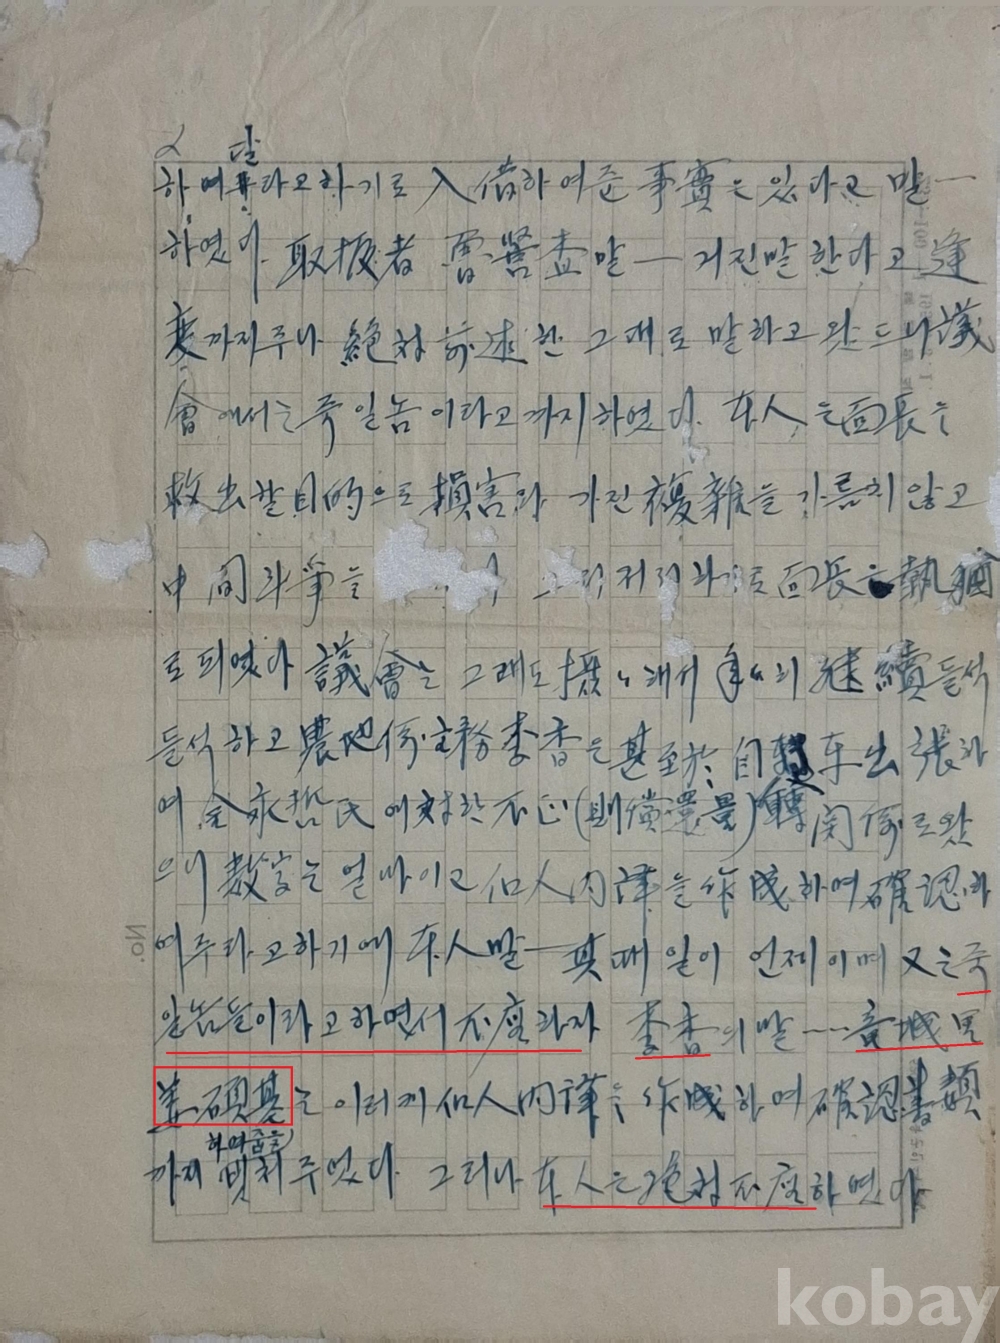 2 달
하여라고하기로 入備하여준 事實은있다고 말一
하였이. 取扱者 曺警査말 — 거진말한다고 逢
変까지주나 絶対 前述한 그대로 말하고 왔드니 議
會에서는죽일놈이라고까지하였다. 本人은面長을
救出할目的으로 損害와 가진複雜을 가름치않고
中間斗爭을 面長은
로되였다 議會는 그래도 継續들석
들석하고 農地係主務李香은 甚至於 自転車出張하
여 金永哲氏에対한不正(償還量) 関係로왔
으니 数字는 얼마이고 個人内譯을作成하여確認하
여주라고하기에 本人말—其때일이 언제이며 又는죽
일놈들이라고하면서 不應하자 李香의말——竜城里
姜碩基는 이러께個人内譯을作成하여確認書類
하여줌을
까지 주었다. 그러나 本人은絶対不應하였다
No.
kobay